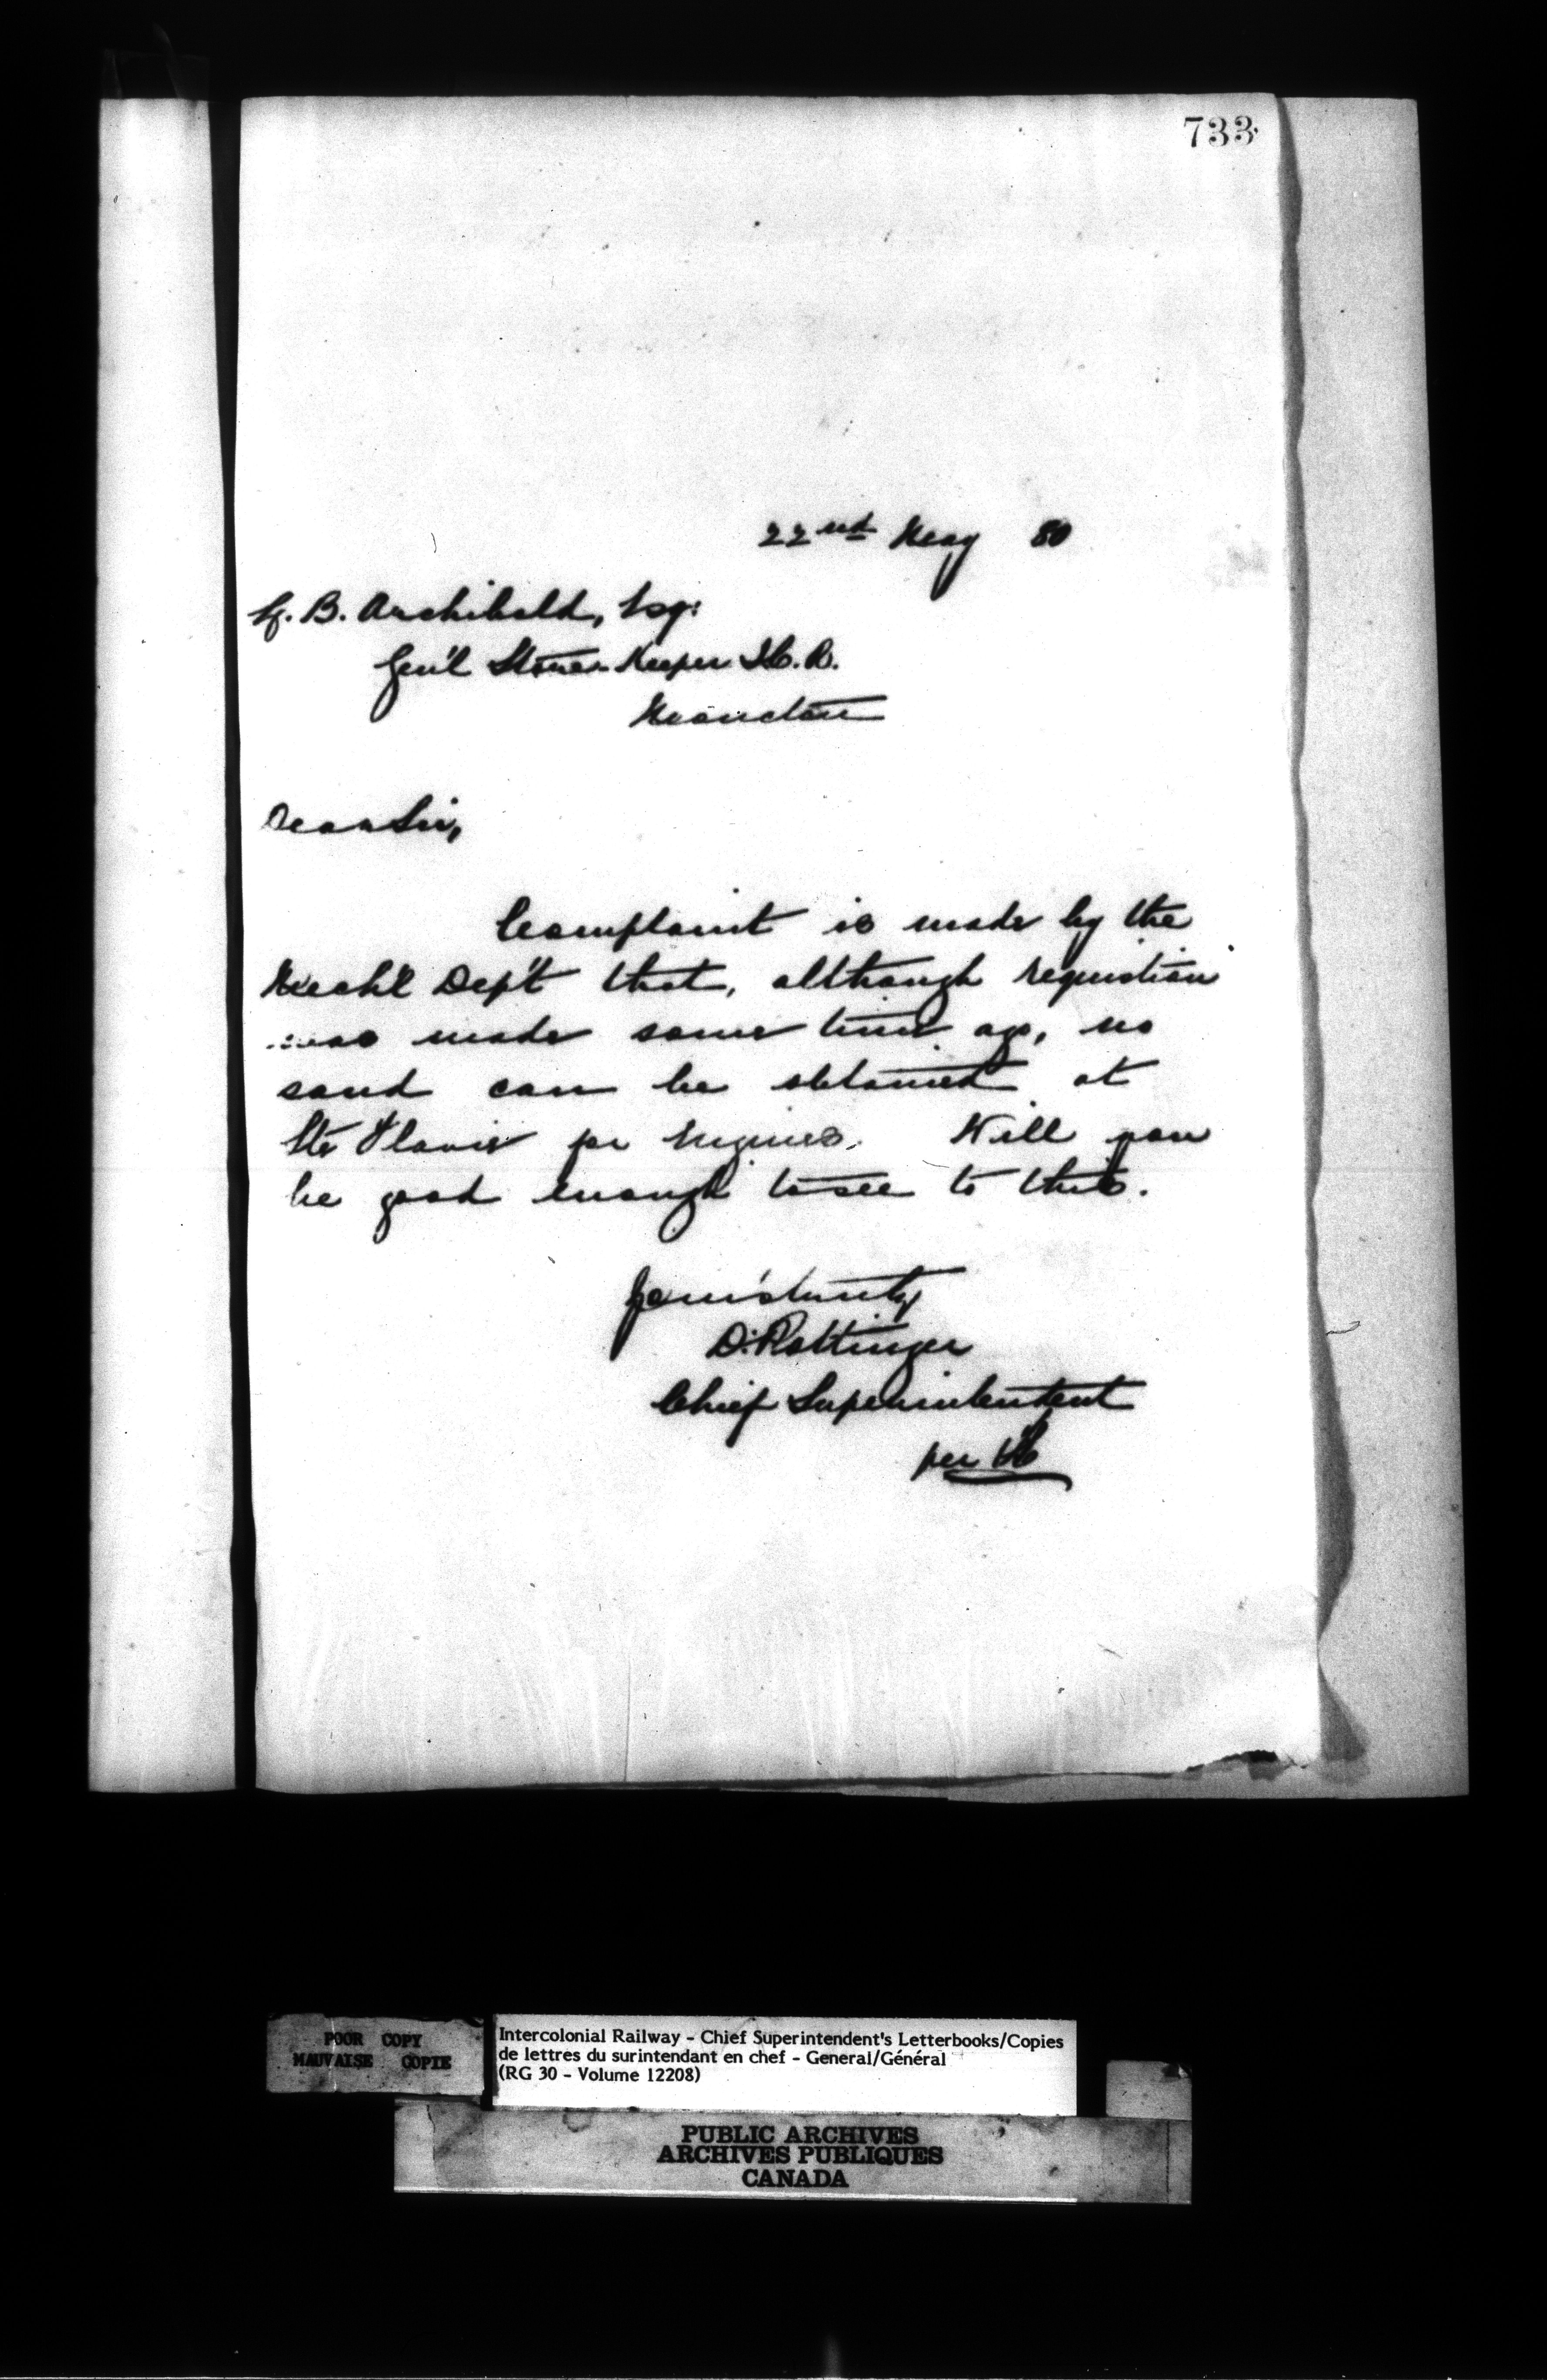 733
22nd May 80
B. Archibald, Esq:
Gen'l Store-Keeper I.C.R.
Moncton
Dear Sir,
Complaint is made by the
Mech'l Dep't that, although requisition
was made some time ago, no
sand can be obtained at
Ste Flavie for Engines. Will you
be good enough to see to this.
Yours truly
D. Pottinger
Chief Superintendent
per
POOR COPY
MAUVAISE COPIE
Intercolonial Railway - Chief Superintendent's Letterbooks/Copies
de lettres du surintendant en chef - General/Général
(RG 30 - Volume 12208)
PUBLIC ARCHIVES
ARCHIVES PUBLIQUES
CANADA